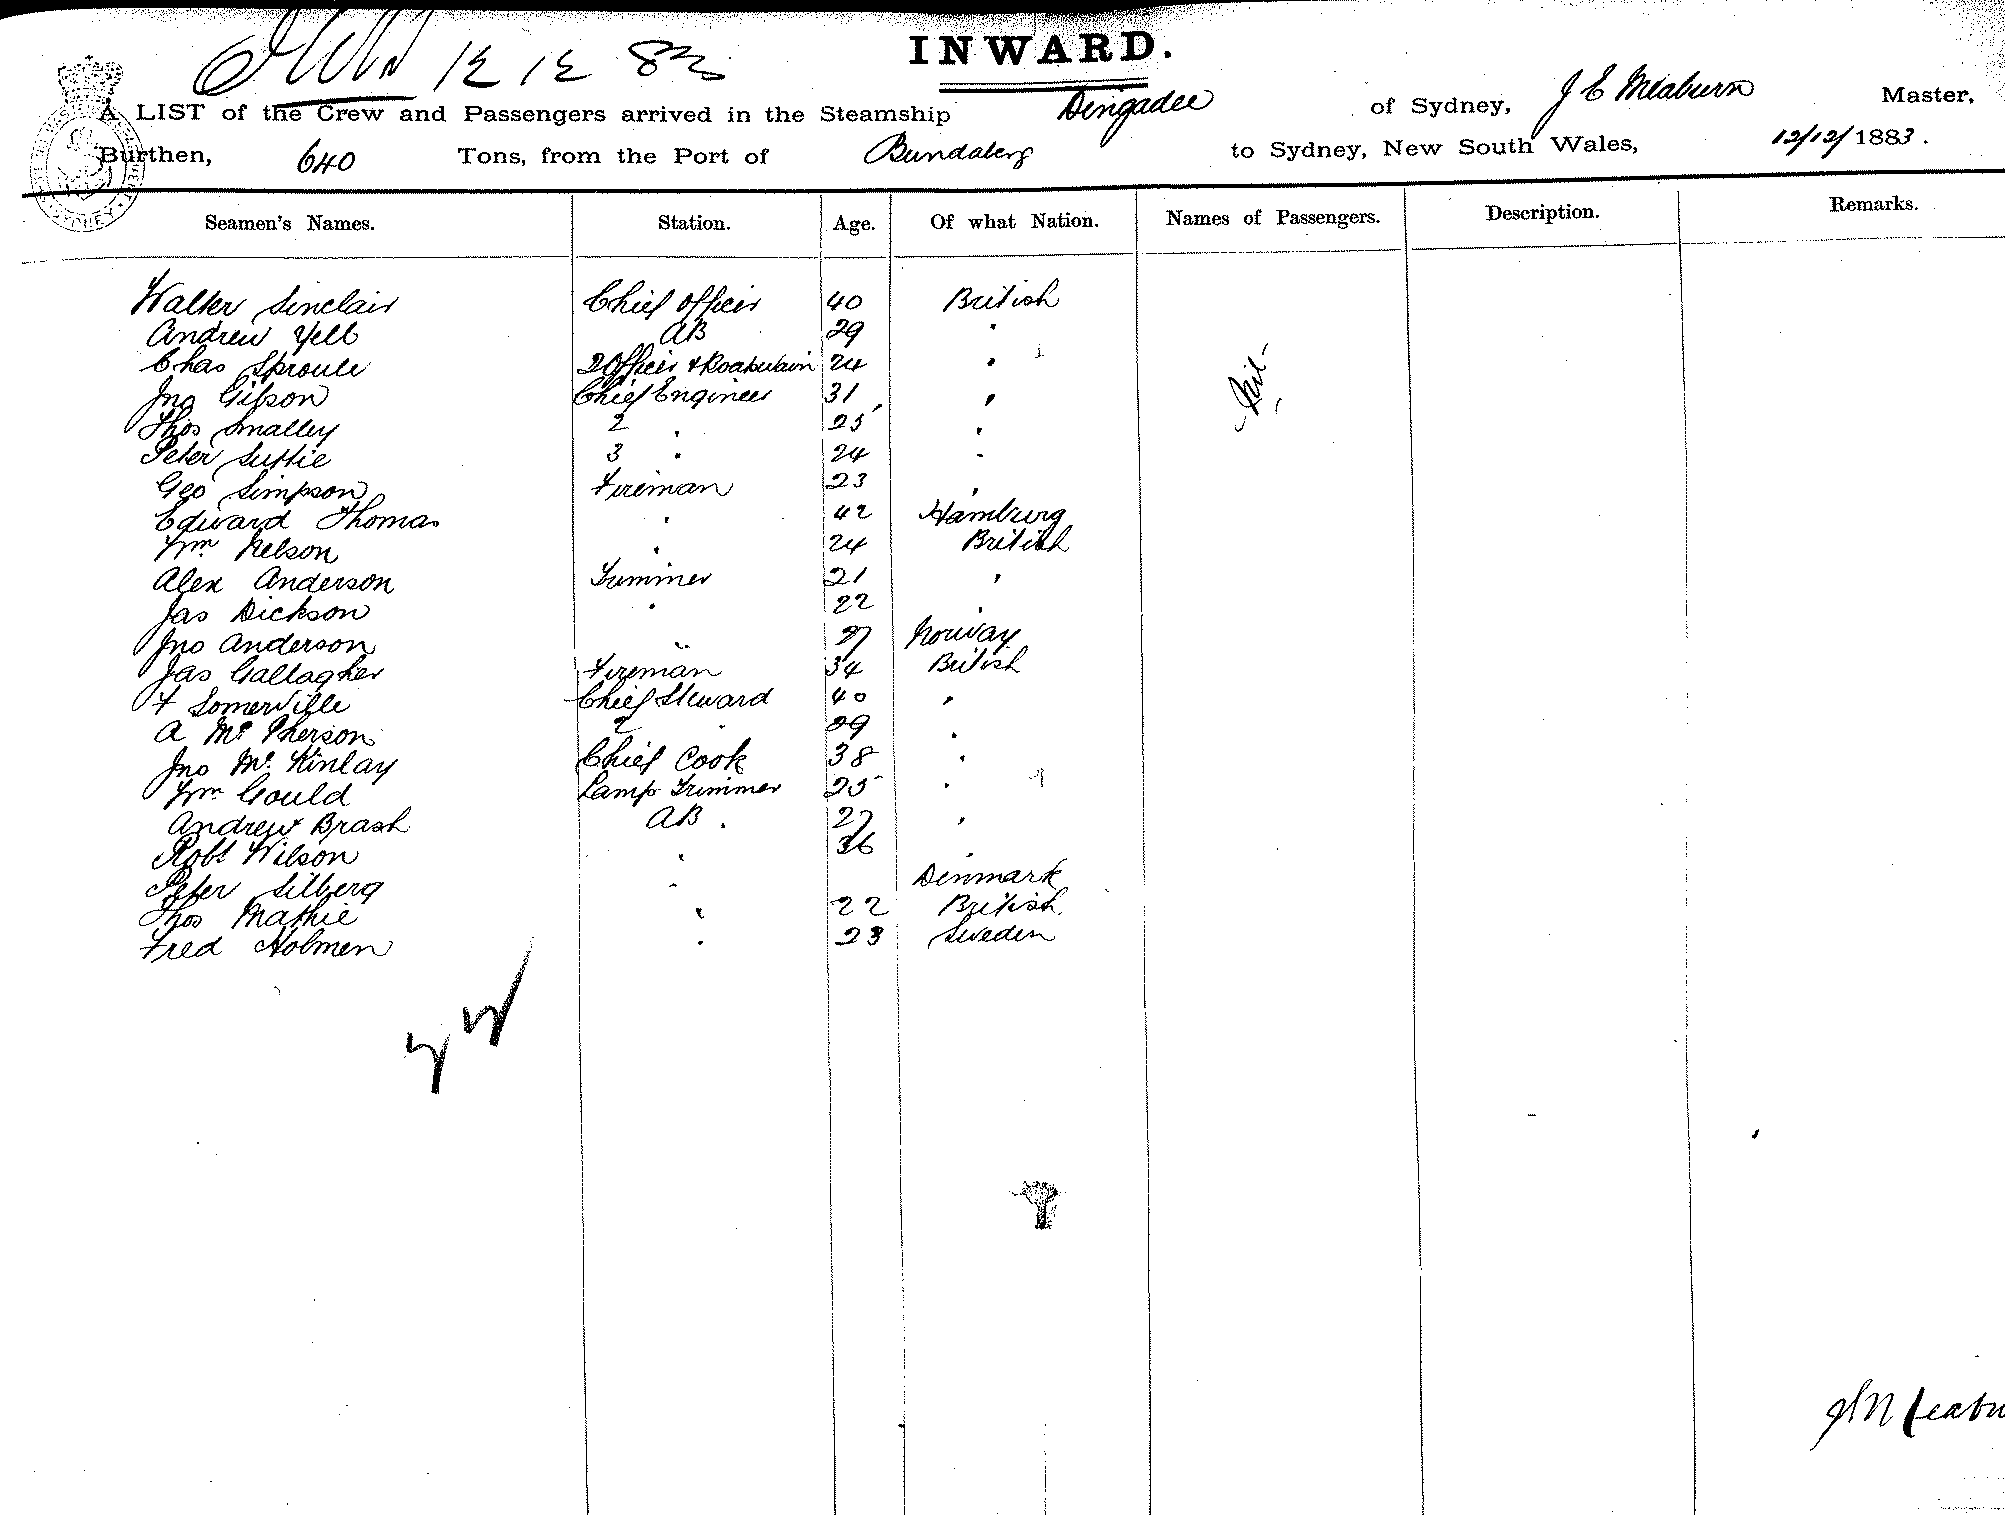 12 12 83
INWARD.
A LIST of the Crew and Passengers arrived in the Steamship Dingadee of Sydney, J E Meaburn Master,
Burthen, 640 Tons, from the Port of Bundaberg to Sydney, New South Wales, 12/12/1883.
Seamen's Names. Station. Age. Of what Nation. Names of Passengers. Description. Remarks.
Walter Sinclair Chief Officer 40 British
Andrew Yell AB 29 "
Chas Sproule 2 Officer & 24 "
Jno Gibson Chief Engineer 31 "
Thos Smalley 2 " 25 "
Peter Suttie 3 " 24 "
Geo Simpson Fireman 23 "
Edward Thomas " 42 Hamburg
Wm Nelson " 24 British
Alex Anderson Trimmer 21 "
Jas Dickson " 22 "
Jno Anderson " 27 Norway
Jas Gallagher Fireman 34 British
F Somerville Chief Steward 40 "
A McPherson 2 " 29 "
Jno McKinlay Chief Cook 38 "
Wm Gould Lamp Trimmer 25 "
Andrew Brash AB 27 "
Robt Wilson " 36 "
Peter Silberg " Denmark
Thos Mathie " 22 British
Fred Holmen " 23 Sweden
Nil